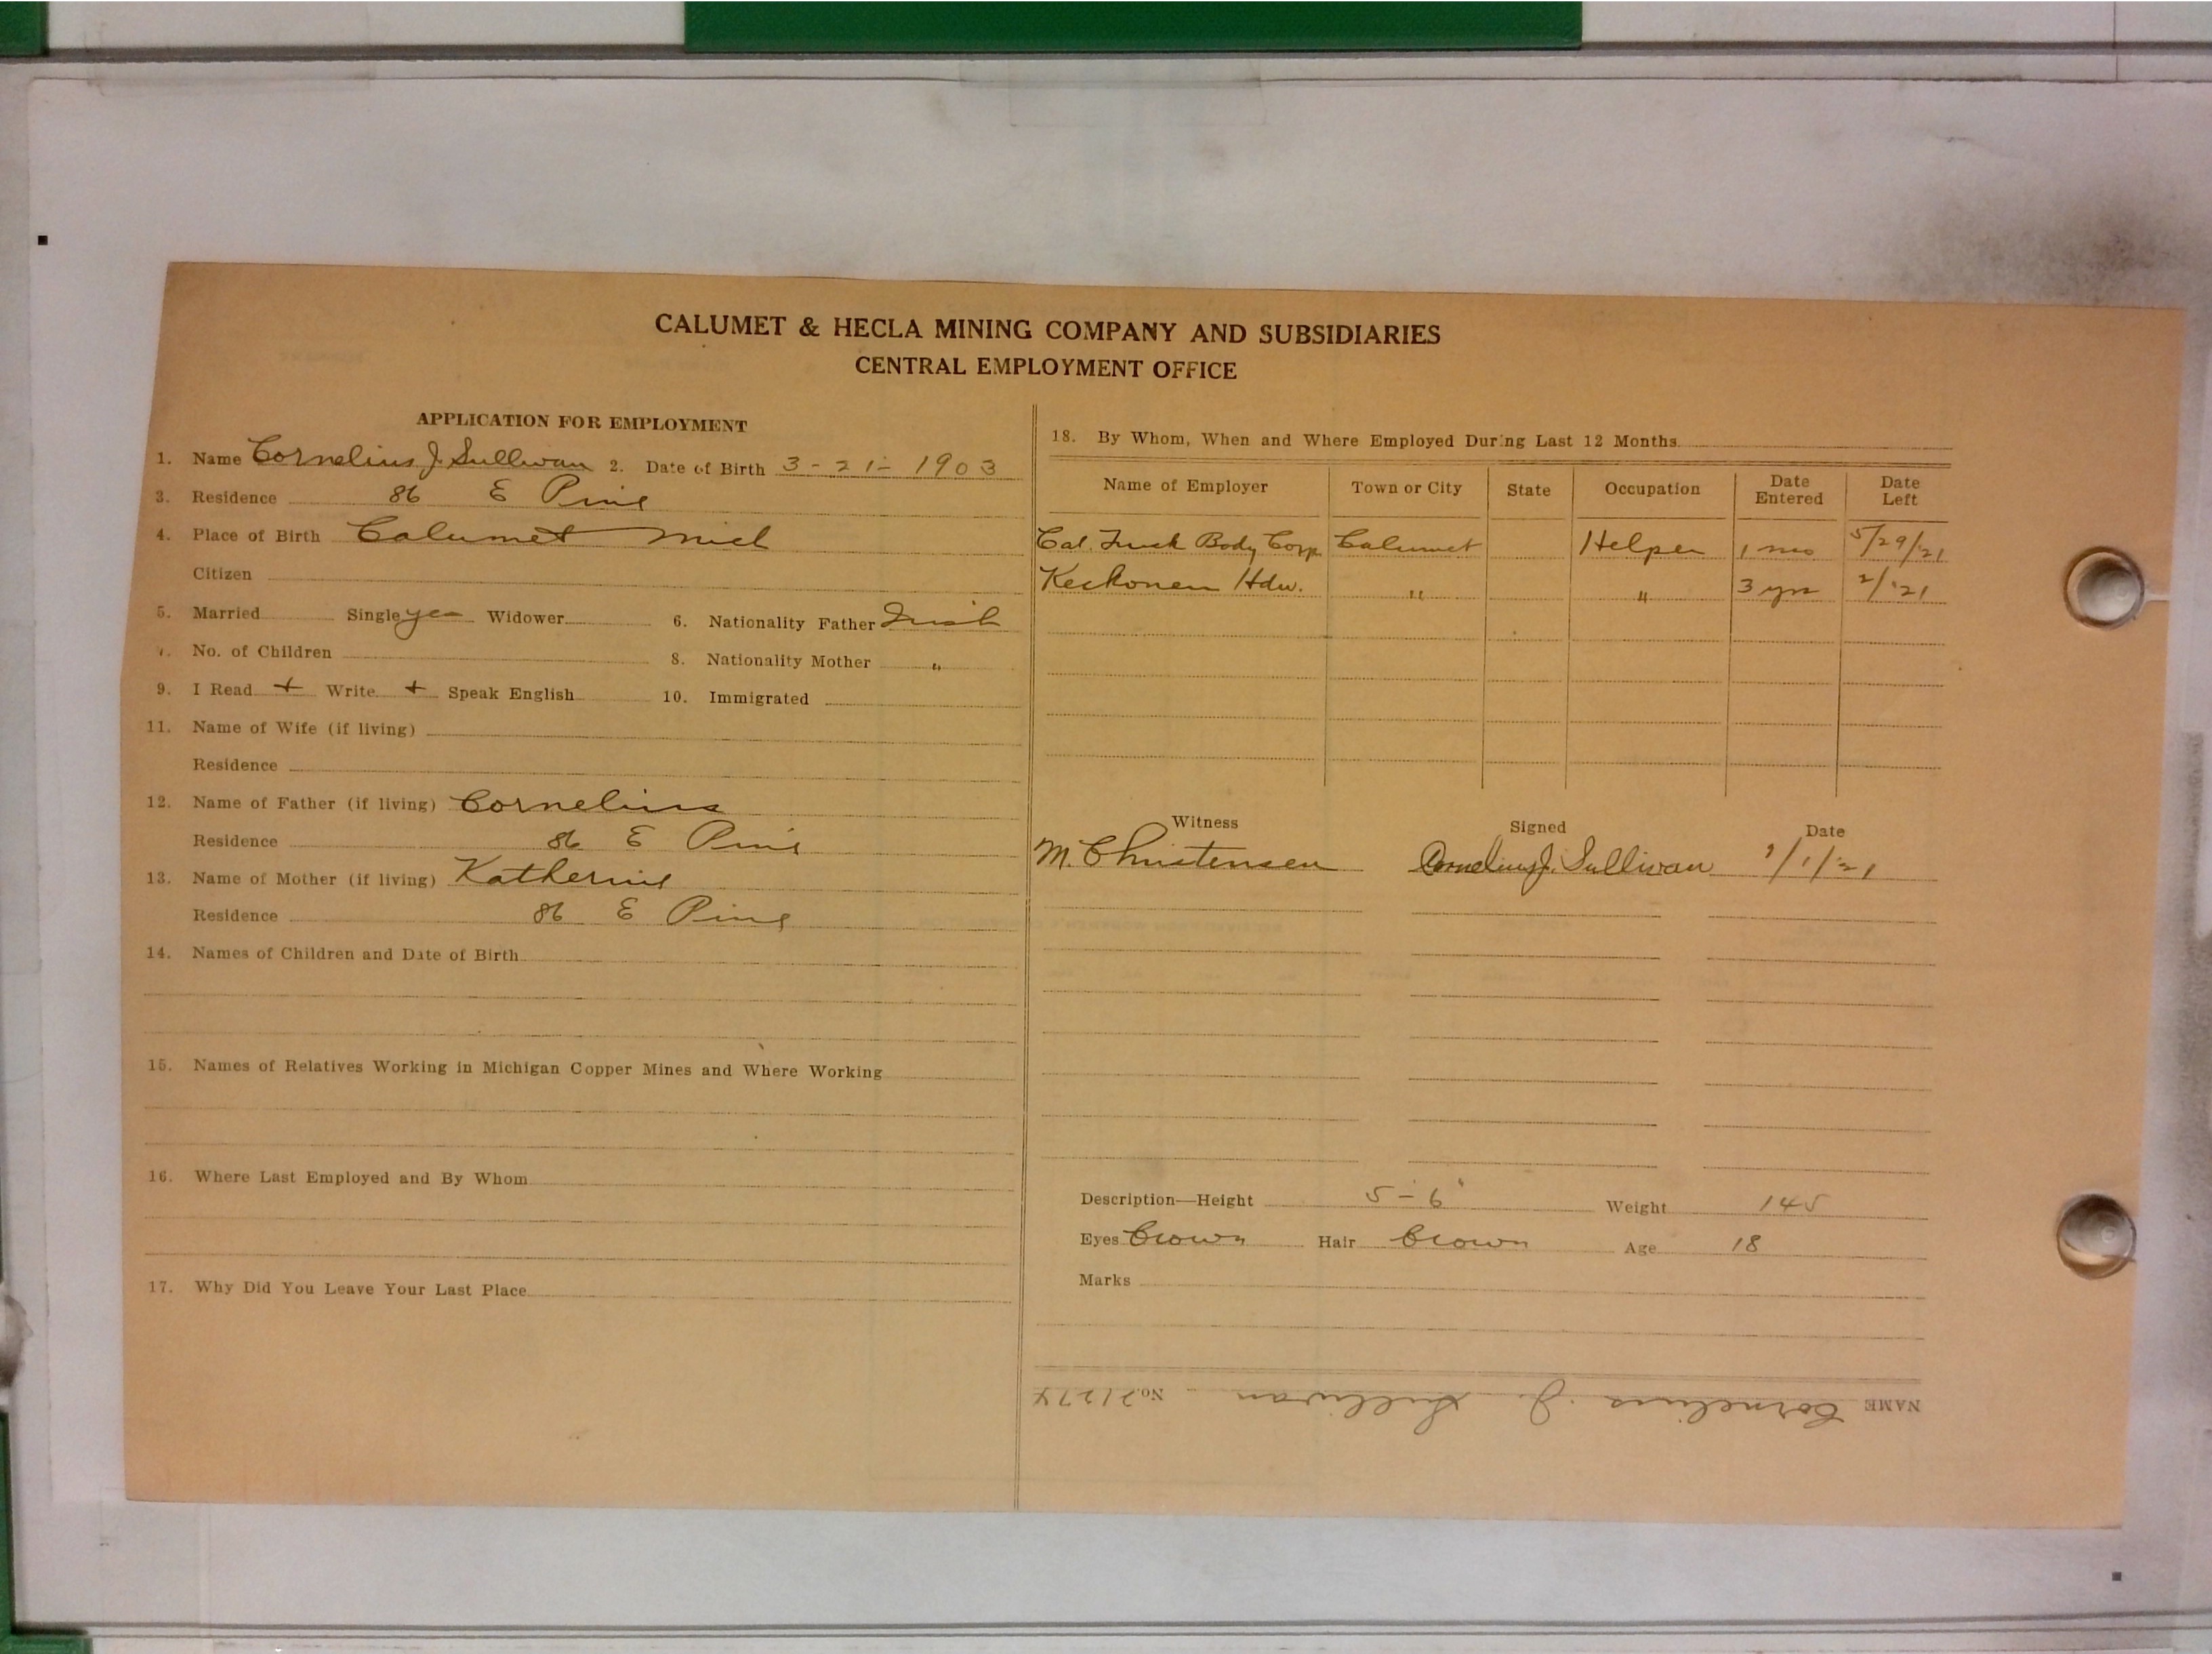 CALUMET & HECLA MINING COMPANY AND SUBSIDIARIES
CENTRAL EMPLOYMENT OFFICE
APPLICATION FOR EMPLOYMENT
1. Name Cornelius J. Sullivan 2. Date of Birth 3-21-1903
3. Residence 86 E Pine
4. Place of Birth Calumet Mich
Citizen
5. Married Single yes Widower 6. Nationality Father Irish
7. No. of Children 8. Nationality Mother "
9. I Read + Write + Speak English 10. Immigrated
11. Name of Wife (if living)
Residence
12. Name of Father (if living) Cornelius
Residence 86 E Pine
13. Name of Mother (if living) Katherine
Residence 86 E Pine
14. Names of Children and Date of Birth
15. Names of Relatives Working in Michigan Copper Mines and Where Working
16. Where Last Employed and By Whom
17. Why Did You Leave Your Last Place
18. By Whom, When and Where Employed During Last 12 Months
Name of Employer Town or City State Occupation Date Entered Date Left
Cal. Truck Body Corp. Calumet Helper 1 mo 5/29/21
Keckonen Hdw. " " 3 yrs 2/'21
Witness Signed Date
M. Christensen Cornelius J. Sullivan /1/21
Description—Height 5-6" Weight 145
Eyes Brown Hair Brown Age 18
Marks
NAME Cornelius J. Sullivan No. 21274